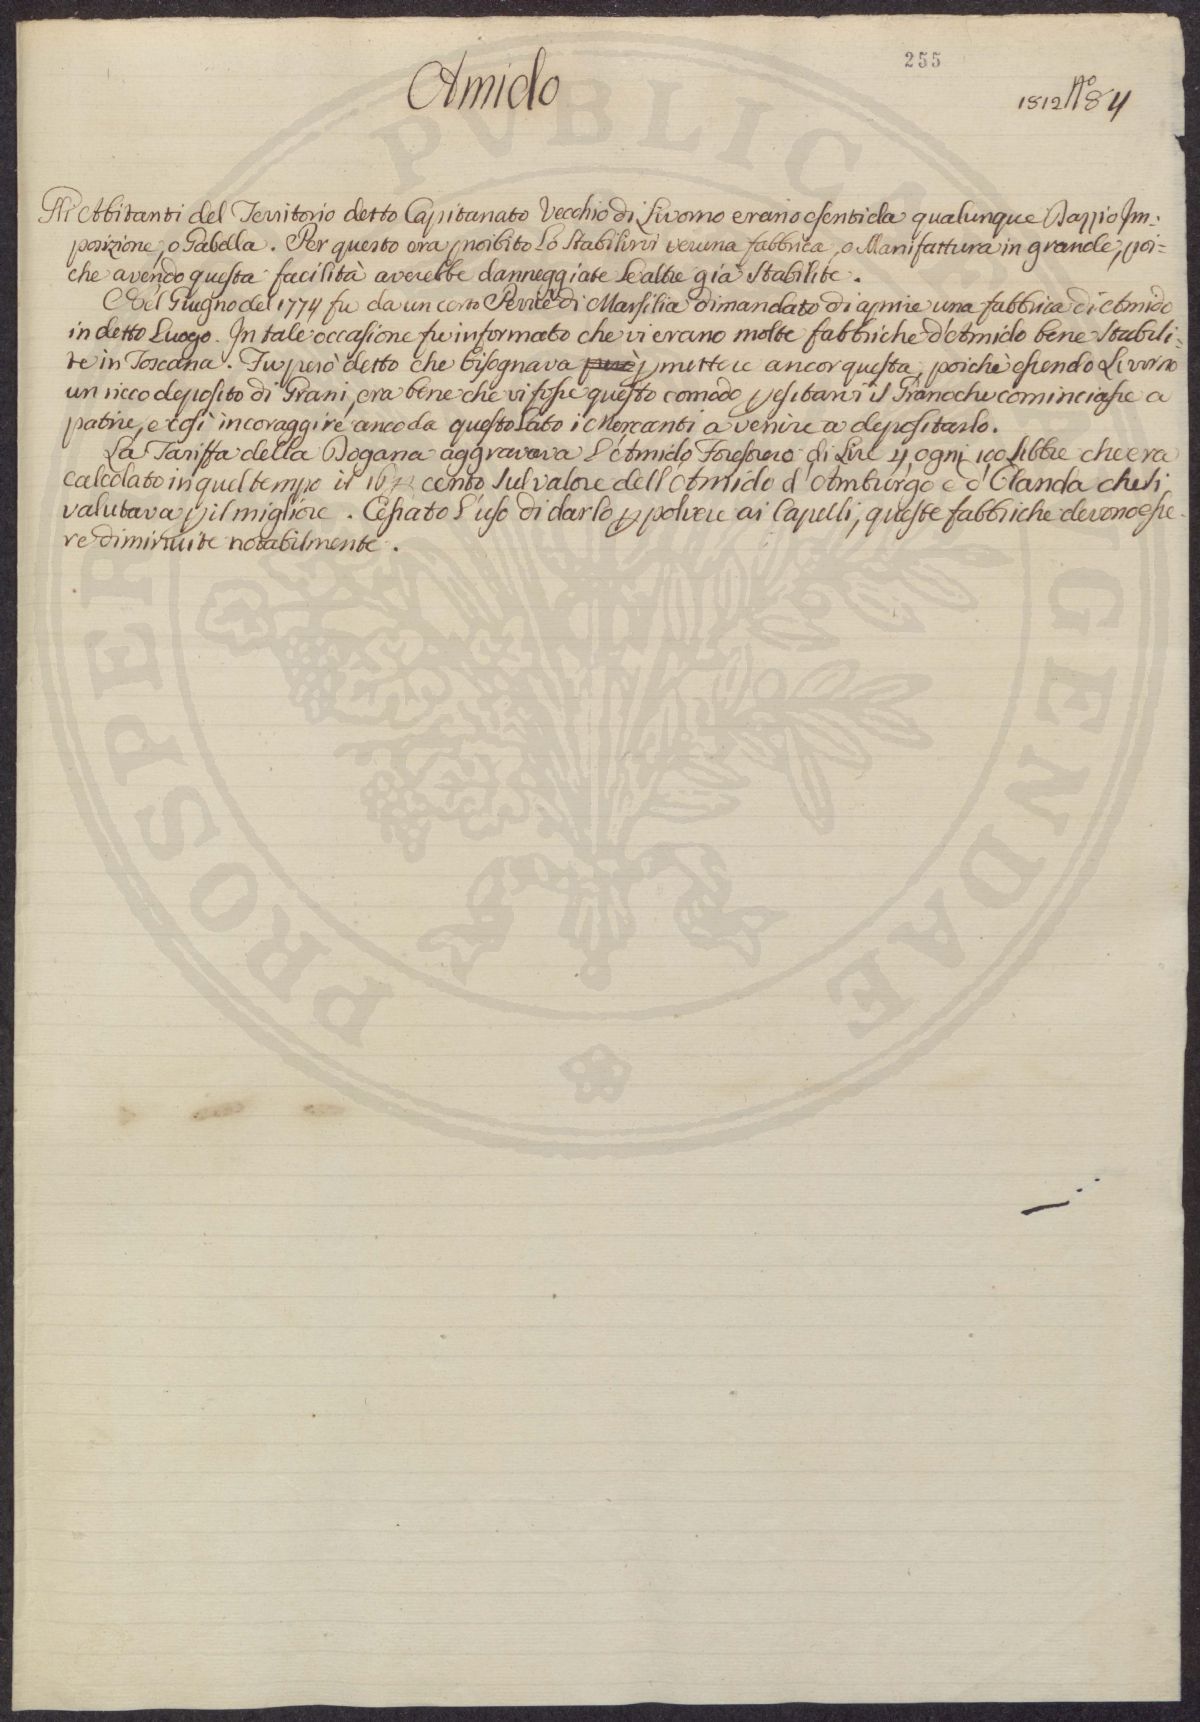 255
Amido
1812 N.º 84
Gli Abitanti del Territorio detto Capitanato Vecchio di Livorno erano esenti da qualunque Dazzio Im:
posizione, o Gabella. Per questo era proibito lo Stabilirvi veruna fabbrica, o Manifattura in grande, poi=
che avendo questa facilità averebbe danneggiate le altre già Stabilite.
Nel Giugno del 1774 fu da un certo di Marsilia dimandato di aprire una fabbrica di Amido
in detto Luogo. In tale occasione fu informato che vi erano molte fabbriche d'Amido bene Stabili=
te in Toscana. Fu però detto che bisognava permettere ancor questa, poichè essendo Livorno
un ricco deposito di Grani, era bene che vi fosse questo comodo per esitarvi il Grano che cominciasse a
patire, e così incoraggire anco da questo lato i Mercanti a venire a depositarlo.
La Tariffa della Dogana aggravava l'Amido Forestiero di Lire 4 ogni 100 libbre che era
calcolato in quel tempo il 16 per cento sul valore dell'Amido d'Amburgo e d'Olanda che si
valutava per il migliore. Cessato l'uso di darlo per polvere ai Capelli, queste fabbriche devono esse=
re diminuite notabilmente.
PROSPERITATI PVBLICAE AVGENDAE